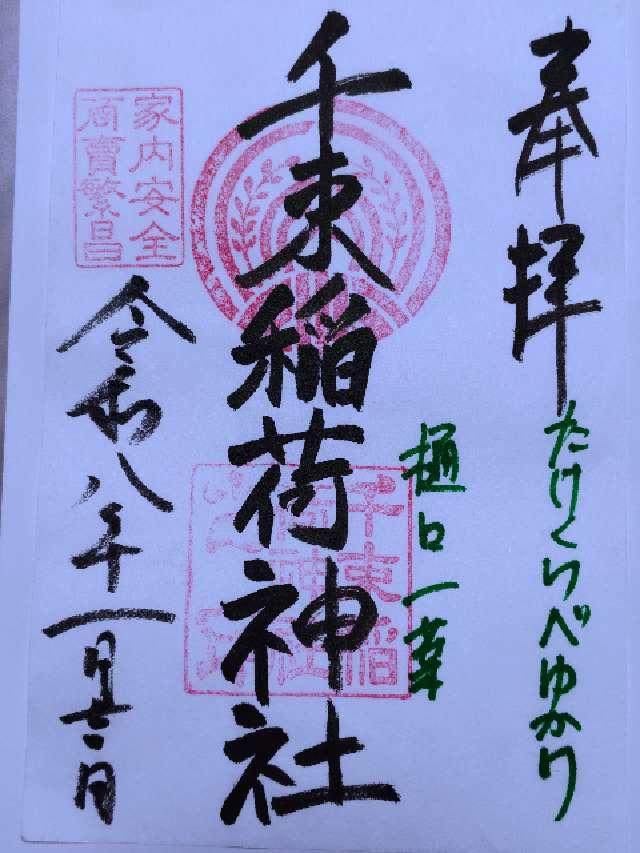 奉拝
たけくらべゆかり
樋口一葉
千束稲荷神社
家内安全
商賣繁昌
千束稲
荷神社
令和八年一月